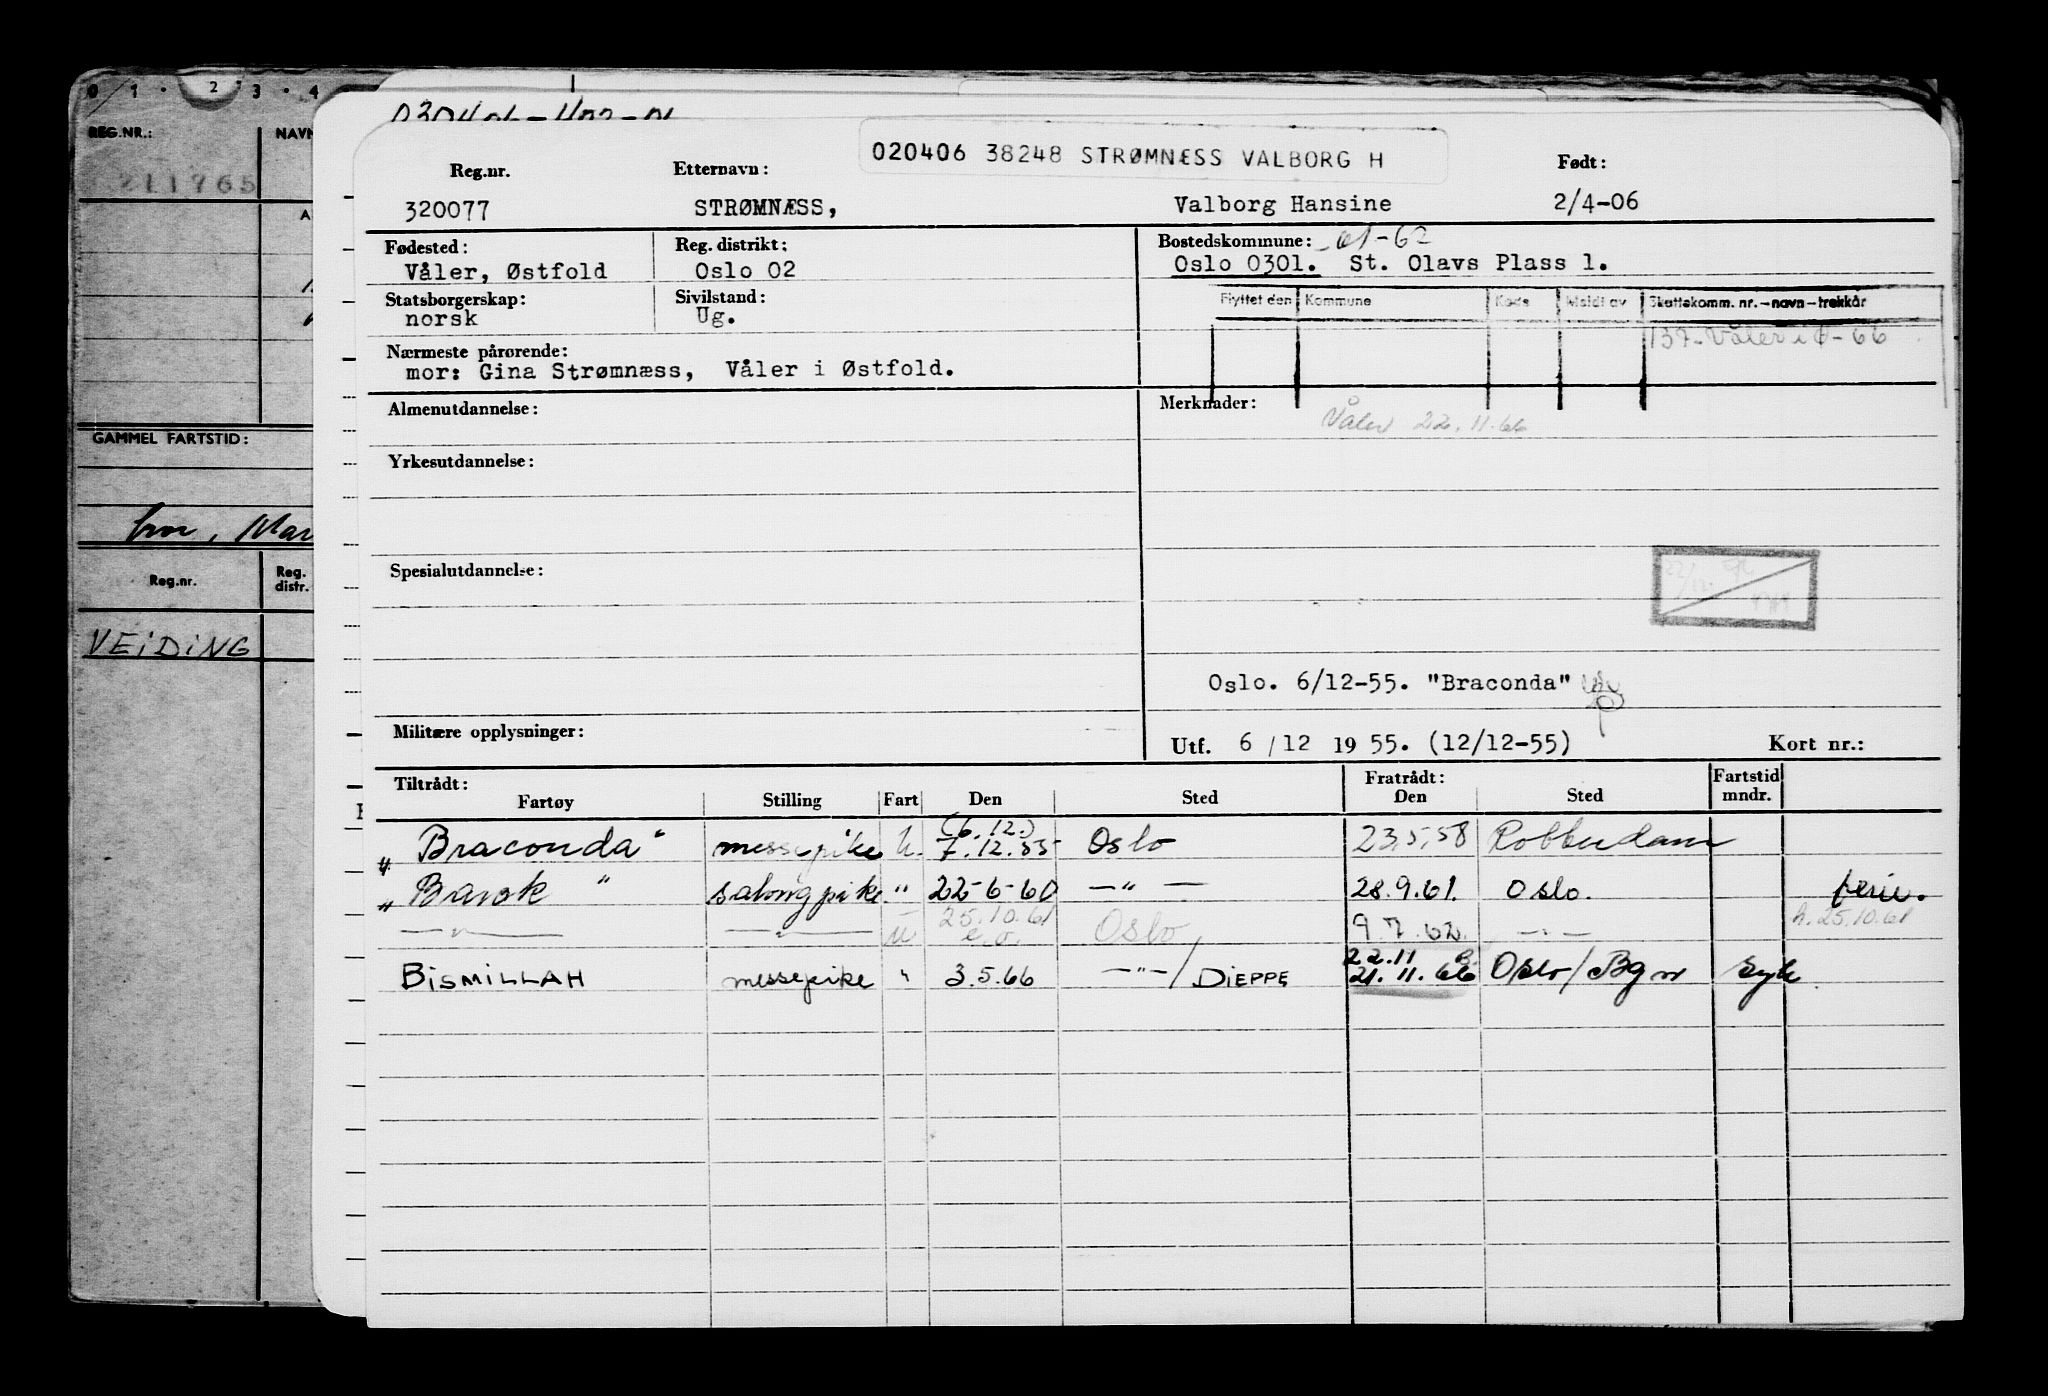 0 1 2 3 4
REG.NR.: NAVN
211765
GAMMEL FARTSTID:
Reg.nr. Reg. distr.
VEIDING
020406 38248 STRØMNÆSS VALBORG H
Reg.nr. Etternavn: Født:
320077 STRØMNÆSS, Valborg Hansine 2/4-06
Fødested: Reg. distrikt: Bostedskommune: 01-62
Våler, Østfold Oslo 02 Oslo 0301. St. Olavs Plass 1.
Statsborgerskap: Sivilstand: Flyttet den Kommune Kode Meldt av Skattekomm. nr.-navn-trekkår
norsk Ug.
137-Våler i Ø-66
Nærmeste pårørende:
mor: Gina Strømnæss, Våler i Østfold.
Almenutdannelse: Merknader:
Våler 22.11.66
Yrkesutdannelse:
Spesialutdannelse:
Oslo. 6/12-55. "Braconda"
Militære opplysninger: Utf. 6/12 1955. (12/12-55) Kort nr.:
Tiltrådt: Fratrådt: Fartstid
Fartøy Stilling Fart Den Sted Den Sted mndr.
(6.12.)
"Braconda" messepike u. 7.12.55 Oslo 23.5.58 Rotterdam
"Barok" salongpike " 22-6-60 —"— 28.9.61. Oslo. ferie.
25.10.61 h. 25.10.61
—"— —"— u e.o. Oslo 9.7.62. —"—
22.11
BISMILLAH messepike " 3.5.66 —"—/DIEPPE 21.11.66 Oslo/Bgn syk